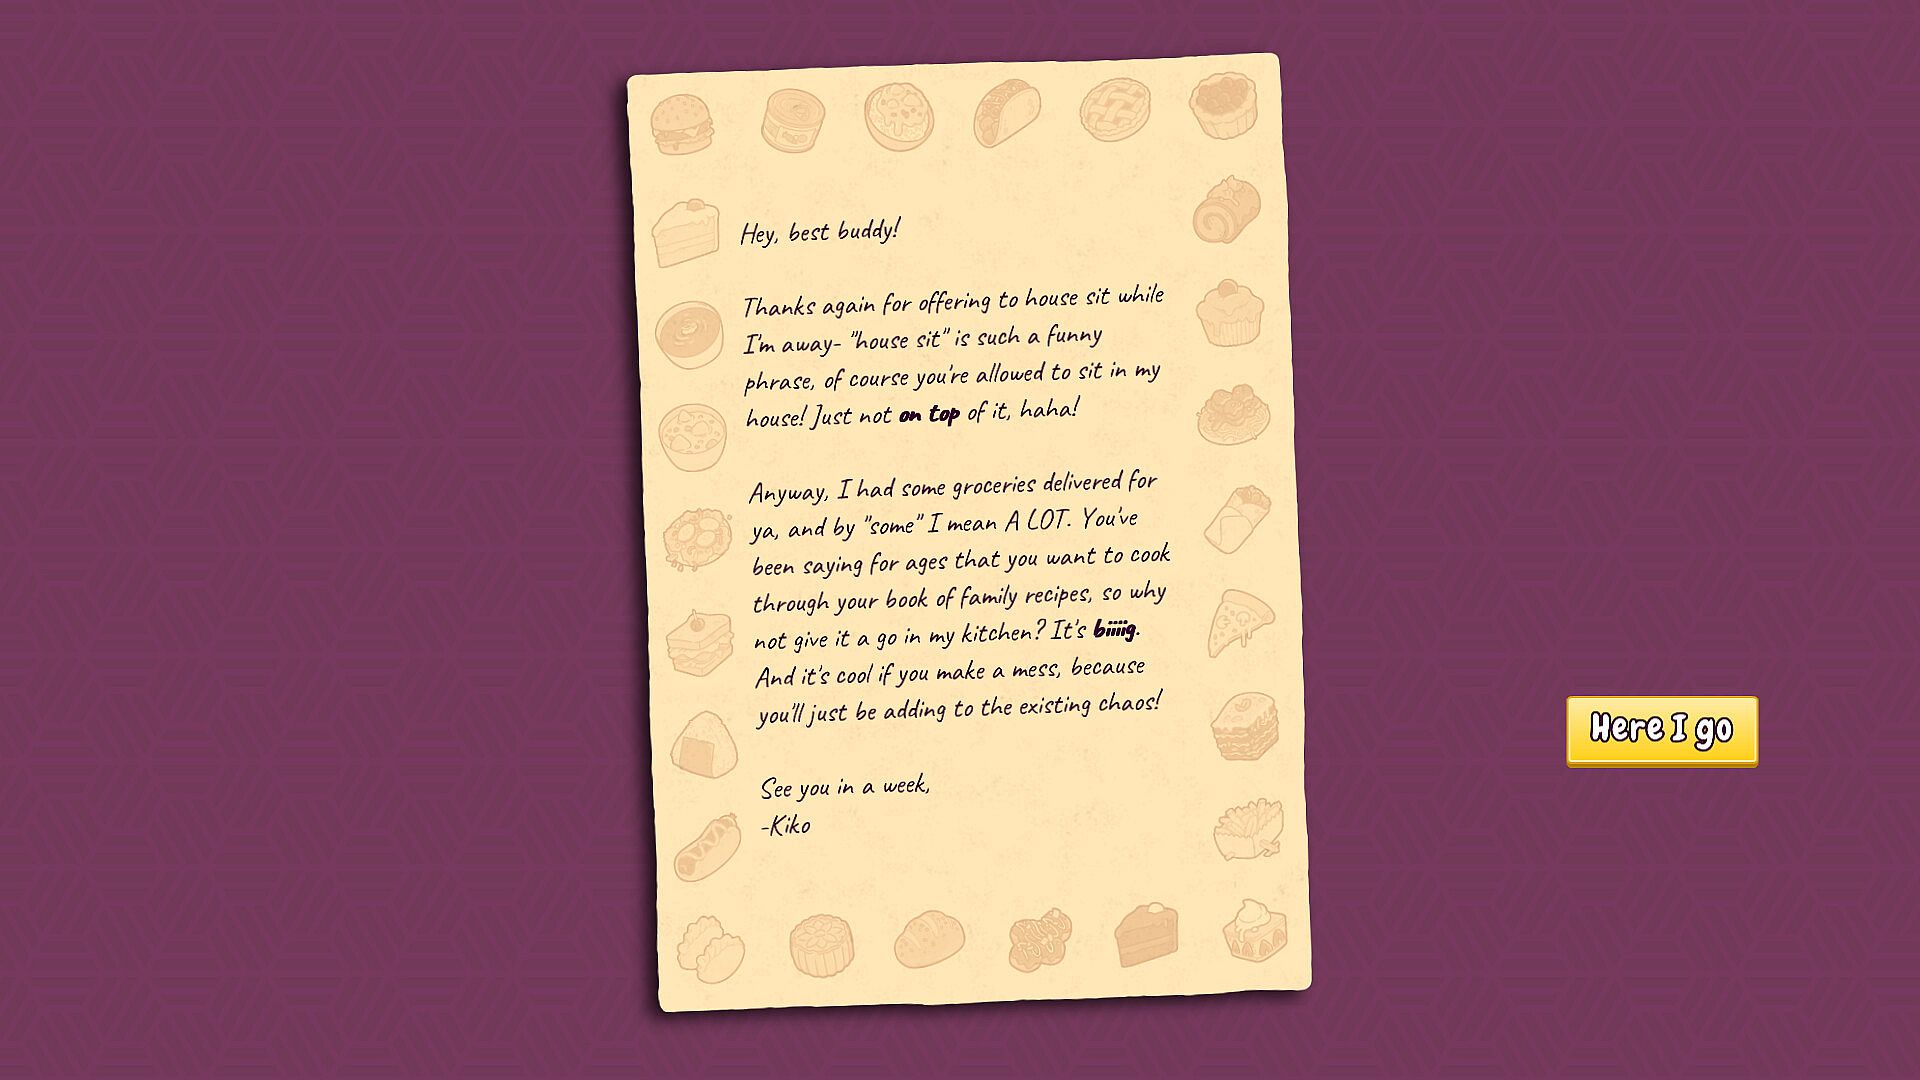 Hey, best buddy!
Thanks again for offering to house sit while
I'm away- "house sit" is such a funny
phrase, of course you're allowed to sit in my
house! Just not on top of it, haha!
Anyway, I had some groceries delivered for
ya, and by "some" I mean A LOT. You've
been saying for ages that you want to cook
through your book of family recipes, so why
not give it a go in my kitchen? It's biiiig.
And it's cool if you make a mess, because
you'll just be adding to the existing chaos!
See you in a week,
-Kiko
Here I go